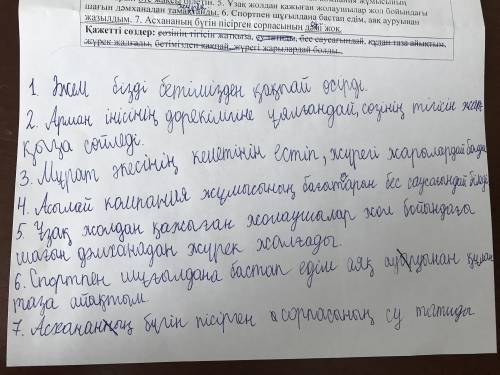 ете жақсы білетін. 5. Ұзақ жолдан қажыған жолаушылар жол бойындағы
шағын дәмханадан тамақтанды. 6. Спортпен шұғылдана бастап едім, аяқ ауруынан
жазылдым. 7. Асхананың бүгін пісірген сорпасының дәмі жоқ.
Қажетті сөздер: сөзінің тігісін жатқыза, су татиды, бес саусағындай, құлан таза айықтым,
жүрек жалғады, бетімізден қақпай, жүрегі жарылардай болды.
1. Әжем бізді бетімізден қақпай өсірді.
2. Арман інісінің дөрекілігіне ұялғандай, сөзінің тігісін жат-
қыза сөйледі.
3. Мұрат әкесінің келетінін естіп, жүрегі жарылардай болды
4. Асылай компания жұмысының бағыттарын бес саусағындай біледі
5. Ұзақ жолдан қажыған жолаушылар жол бойындағы
шағын дәмханадан жүрек жалғады.
6. Спортпен шұғылдана бастап едім аяқ ауруынан құлан
таза айықтым.
7. Асхананың бүгін пісірген сорпасының су татиды